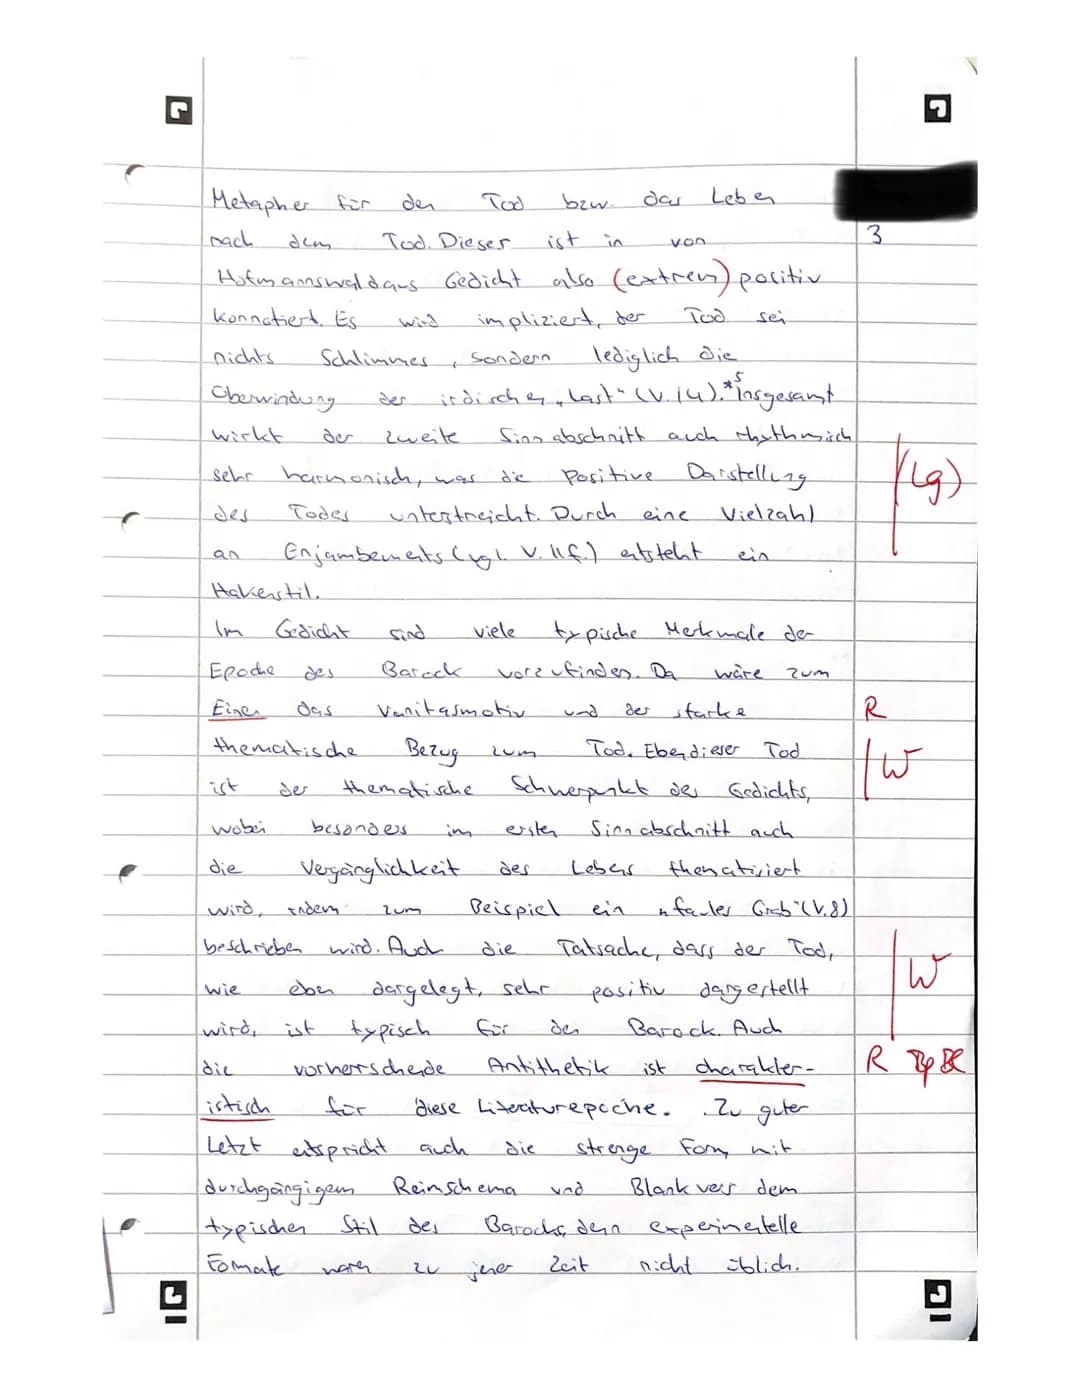 Metapher für den Tod bzw. das Leben
nach dem Tod. Dieser ist in von 3
Hofmannswaldaus Gedicht also (extrem) positiv
konnotiert. Es wird impliziert, der Tod sei
nichts Schlimmes, sondern lediglich die
Überwindung der irdischen „Last" (V. 14).*5 Insgesamt
wirkt der zweite Sinnabschnitt auch rhythmisch
sehr harmonisch, was die positive Darstellung (Lg)
des Todes unterstreicht. Durch eine Vielzahl
an Enjambements (vgl. V. 11f.) entsteht ein
Hakenstil.
Im Gedicht sind viele typische Merkmale der
Epoche des Barock vorzufinden. Da wäre zum
Einen das Vanitasmotiv und der starke R
thematische Bezug zum Tod. Eben dieser Tod W
ist der thematische Schwerpunkt des Gedichts,
wobei besonders im ersten Sinnabschnitt auch
die Vergänglichkeit des Lebens thematisiert
wird, indem zum Beispiel ein „faules Grab" (V.8)
beschrieben wird. Auch die Tatsache, dass der Tod,
wie eben dargelegt, sehr positiv dargestellt W
wird, ist typisch für den Barock. Auch
die vorherrschende Antithetik ist charakter- R
istisch für diese Literaturepoche. Zu guter
Letzt entspricht auch die strenge Form mit
durchgängigem Reimschema und Blankvers dem
typischen Stil des Barocks, denn experimentelle
Formate waren zu jener Zeit nicht üblich.